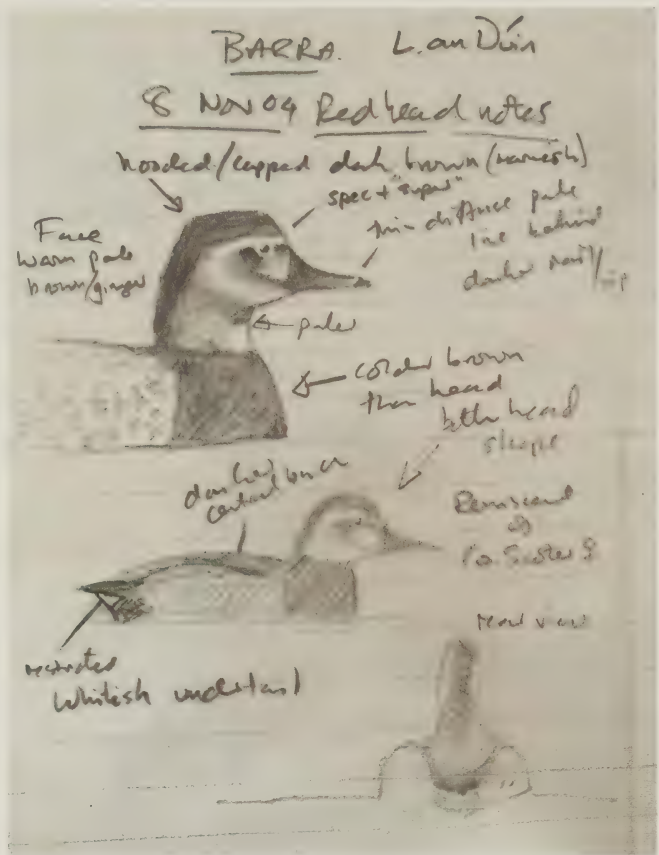 BARRA. L. an Dùin
8 NOV 04 Redhead notes
hooded/capped dark brown (warmish)
spec + "super"
thin diffuse pale
line behind
darker nail/tip
Face
warm pale
brown/ginger
paler
colder brown
than head
better head
shape
darker
central
Reminiscent
of
Co. Scoter ♀
Rear view
restricted
Whitish undertail